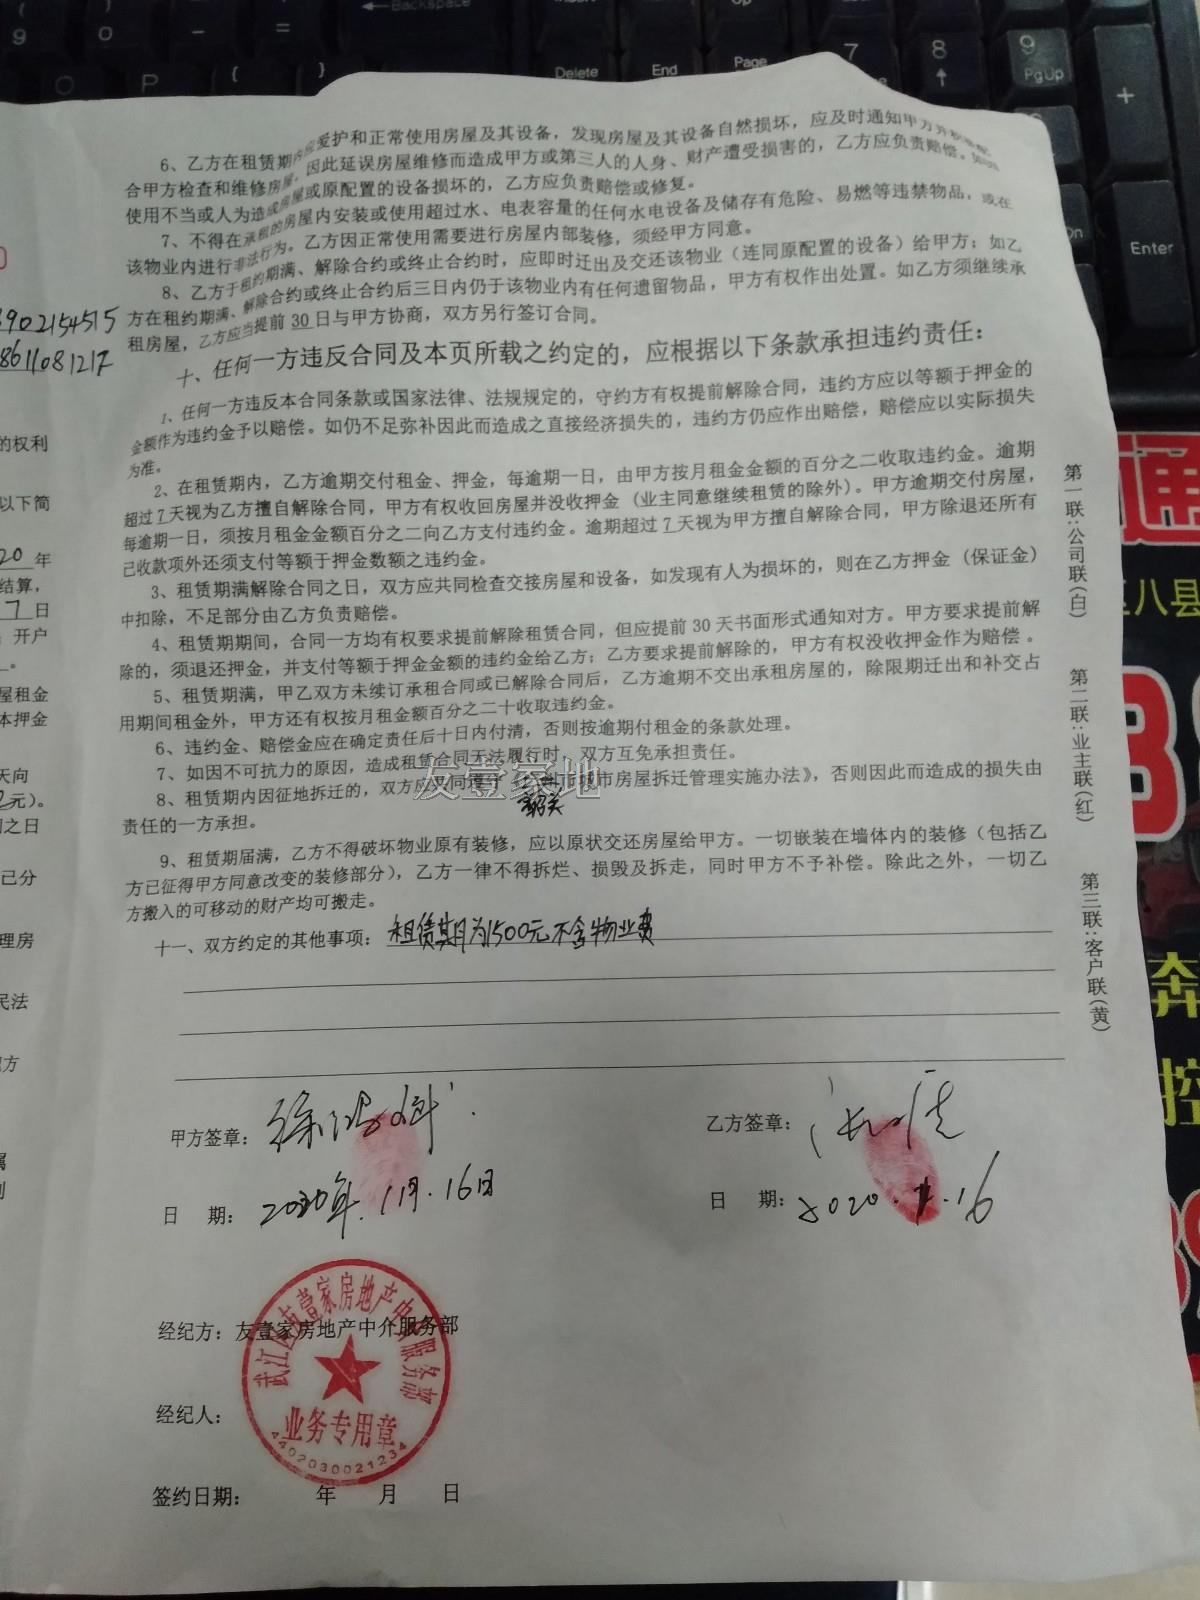 6、乙方在租赁期内应爱护和正常使用房屋及其设备，发现房屋及其设备自然损坏，应及时通知甲方并积极配
合甲方检查和维修房屋，因此延误房屋维修而造成甲方或第三人的人身、财产遭受损害的，乙方应负责赔偿。如因
使用不当或人为造成房屋或原配置的设备损坏的，乙方应负责赔偿或修复。
7、不得在承租的房屋内安装或使用超过水、电表容量的任何水电设备及储存有危险、易燃等违禁物品，或在
该物业内进行非法行为。乙方因正常使用需要进行房屋内部装修，须经甲方同意。
8、乙方于租约期满、解除合约或终止合约时，应即时迁出及交还该物业（连同原配置的设备）给甲方；如乙
方在租约期满、解除合约或终止合约后三日内仍于该物业内有任何遗留物品，甲方有权作出处置。如乙方须继续承
租房屋，乙方应当提前30日与甲方协商，双方另行签订合同。
十、任何一方违反合同及本页所载之约定的，应根据以下条款承担违约责任：
1、任何一方违反本合同条款或国家法律、法规规定的，守约方有权提前解除合同，违约方应以等额于押金的
金额作为违约金予以赔偿。如仍不足弥补因此而造成之直接经济损失的，违约方仍应作出赔偿，赔偿应以实际损失
为准。
2、在租赁期内，乙方逾期交付租金、押金，每逾期一日，由甲方按月租金金额的百分之二收取违约金。逾期
超过7天视为乙方擅自解除合同，甲方有权收回房屋并没收押金（业主同意继续租赁的除外）。甲方逾期交付房屋，
每逾期一日，须按月租金金额百分之二向乙方支付违约金。逾期超过7天视为甲方擅自解除合同，甲方除退还所有
己收款项外还须支付等额于押金数额之违约金。
3、租赁期满解除合同之日，双方应共同检查交接房屋和设备，如发现有人为损坏的，则在乙方押金（保证金）
中扣除，不足部分由乙方负责赔偿。
4、租赁期期间，合同一方均有权要求提前解除租赁合同，但应提前30天书面形式通知对方。甲方要求提前解
除的，须退还押金，并支付等额于押金金额的违约金给乙方；乙方要求提前解除的，甲方有权没收押金作为赔偿。
5、租赁期满，甲乙双方未续订承租合同或已解除合同后，乙方逾期不交出承租房屋的，除限期迁出和补交占
用期间租金外，甲方还有权按月租金额百分之二十收取违约金。
6、违约金、赔偿金应在确定责任后十日内付清，否则按逾期付租金的条款处理。
7、如因不可抗力的原因，造成租赁合同无法履行时，双方互免承担责任。
8、租赁期内因征地拆迁的，双方应共同遵守《 市城市房屋拆迁管理实施办法》，否则因此而造成的损失由
韶关
责任的一方承担。
9、租赁期届满，乙方不得破坏物业原有装修，应以原状交还房屋给甲方。一切嵌装在墙体内的装修（包括乙
方已征得甲方同意改变的装修部分），乙方一律不得拆烂、损毁及拆走，同时甲方不予补偿。除此之外，一切乙
方搬入的可移动的财产均可搬走。
十一、双方约定的其他事项：租赁期月为1500元不含物业费
甲方签章： 乙方签章：
日 期：2020年.11月.16日 日 期：2020. .16
经纪方：友壹家房地产中介服务部
经纪人：
签约日期： 年 月 日
武江区友壹家房地产中介服务部
业务专用章
4402030021234
第一联：公司联（白） 第二联：业主联（红） 第三联：客户联（黄）
友壹家地
902154515
8611081217
的权利
以下简
20年
结算，
7日
开户
屋租金
本押金
天向
元）。
之日
己分
理房
民法
方
通
八县
奔
控
Backspace
Delete
End
Page
7
8
9
PgUp
+
Enter
O
P